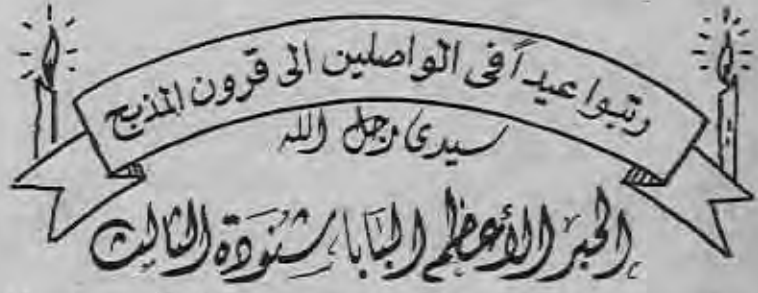 رتبوا عيداً فى الواصلين الى قرون المذبح
سيدى رجل الله
الحبر الأعظم البابا شنودة الثالث